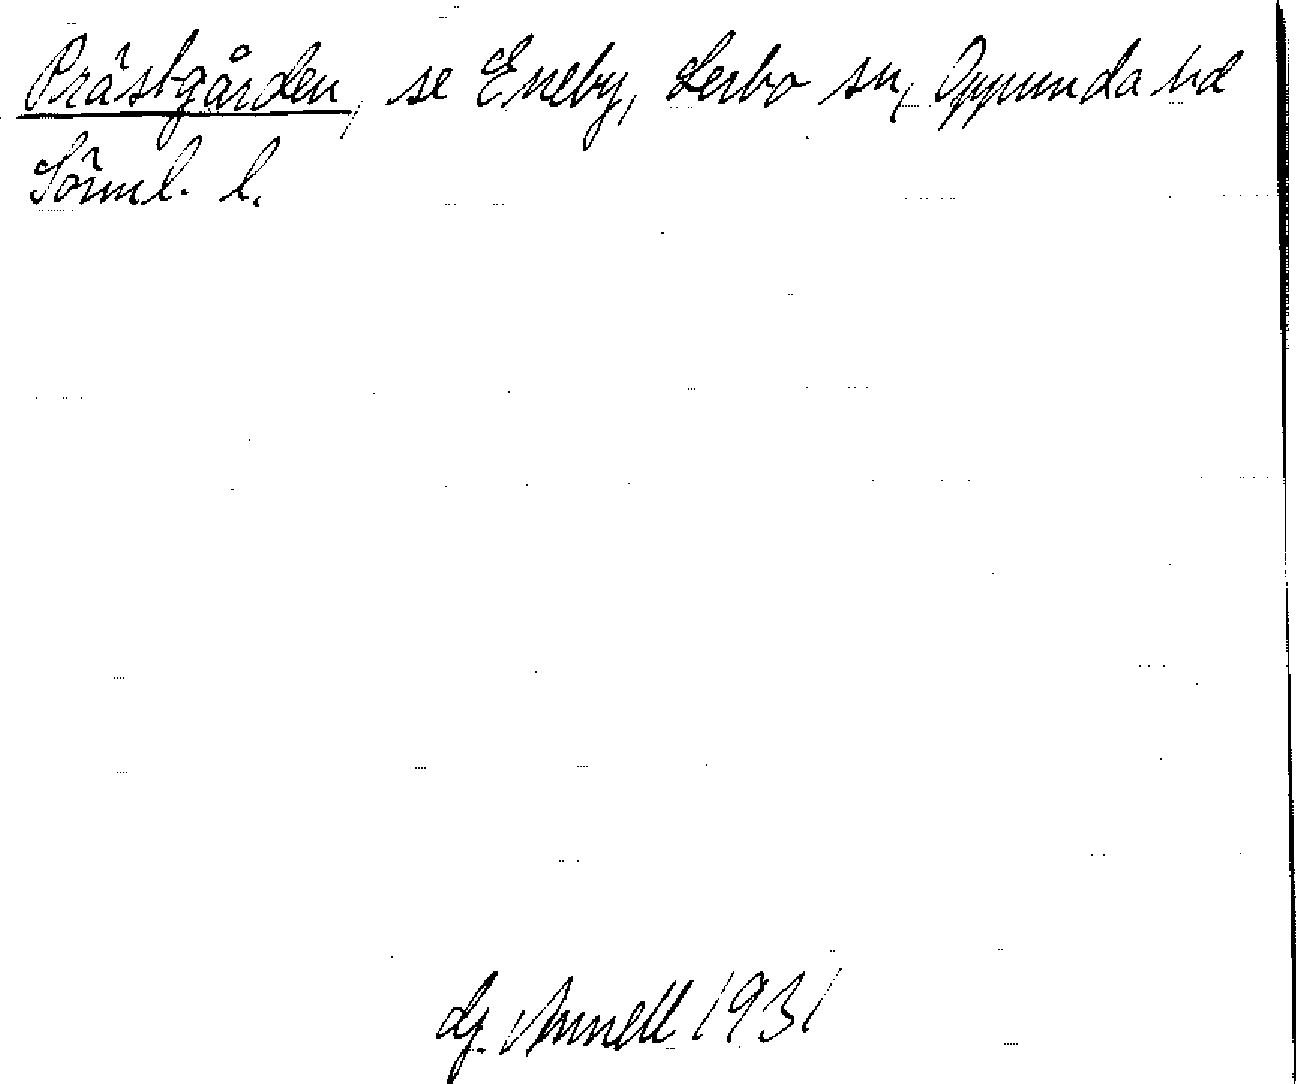 Prästgården, se Eneby, Lerbo sn, Oppunda hd
Sörml. l.
G. Annell 1931